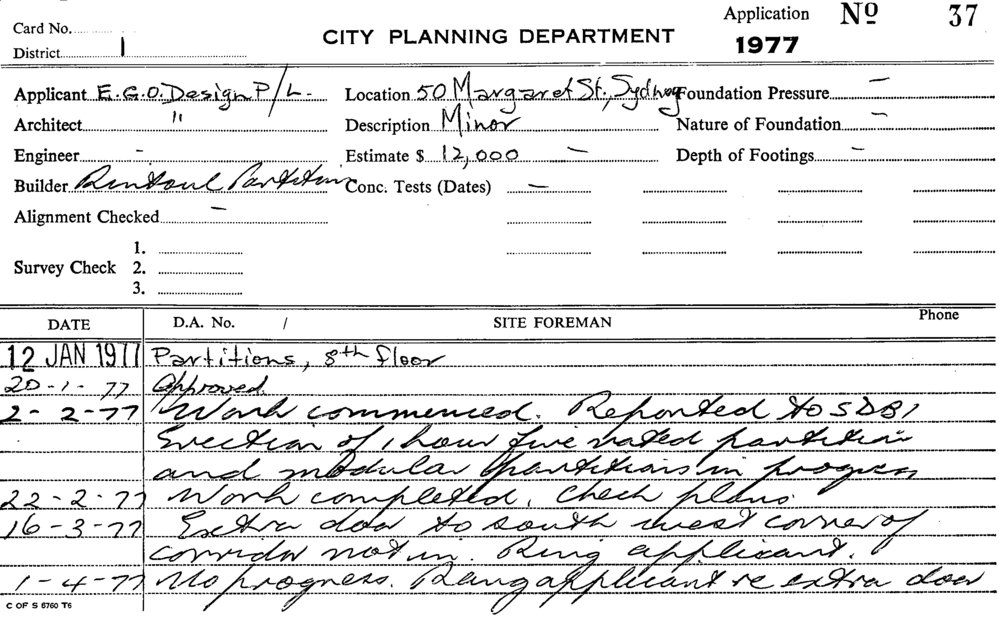 Card No.
District 1
CITY PLANNING DEPARTMENT
Application No 37
1977
Applicant E.G.O. Design P/L.
Location 50 Margaret St, Sydney
Foundation Pressure –
Architect "
Description Minor
Nature of Foundation –
Engineer -
Estimate $ 12,000 –
Depth of Footings –
Builder Rintoul Partition
Conc. Tests (Dates) –
Alignment Checked –
Survey Check 1.
2.
3.
DATE D.A. No. / SITE FOREMAN Phone
12 JAN 1977 Partitions, 8th floor
20-1-77 Approved.
2-2-77 Work commenced. Reported to SDB1
Erection of 1 hour fire rated partition
and modular partitions in progress
22-2-77 Work completed. Check plans.
16-3-77 Extra door to south west corner of
corridor not in. Ring applicant.
1-4-77 No progress. Rang applicant re extra door
C OF S 6760 T6